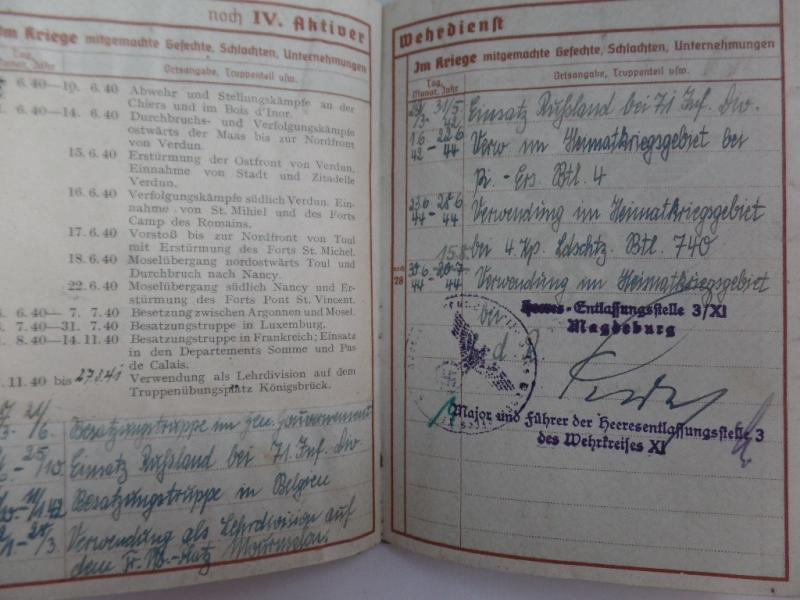 noch IV. Aktiver
Im Kriege mitgemachte Gefechte, Schlachten, Unternehmungen
Tag, Monat, Jahr
Ortsangabe, Truppenteil usw.
6.40—10. 6.40 Abwehr und Stellungskämpfe an der
Chiers und im Bois d'Inor.
6.40—14. 6.40 Durchbruchs- und Verfolgungskämpfe
ostwärts der Maas bis zur Nordfront
von Verdun.
15. 6.40 Erstürmung der Ostfront von Verdun.
Einnahme von Stadt und Zitadelle
Verdun.
16. 6.40 Verfolgungskämpfe südlich Verdun. Ein-
nahme von St. Mihiel und des Forts
Camp des Romains.
17. 6.40 Vorstoß bis zur Nordfront von Toul
mit Erstürmung des Forts St. Michel.
18. 6.40 Moselübergang nordostwärts Toul und
Durchbruch nach Nancy.
22. 6.40 Moselübergang südlich Nancy und Er-
stürmung des Forts Pont St. Vincent.
6.40— 7. 7.40 Besetzung zwischen Argonnen und Mosel.
7.40—31. 7.40 Besatzungstruppe in Luxemburg.
8.40—14.11.40 Besatzungstruppe in Frankreich; Einsatz
in den Departements Somme und Pas
de Calais.
11.40 bis 27.3.41 Verwendung als Lehrdivision auf dem
Truppenübungsplatz Königsbrück.
Besatzungstruppe im Gen. Gouvernement
Einsatz Rußland bei 71. Inf. Div
Besatzungstruppe in Belgien
Verwendung als Lehrdivision auf
dem Tr. Üb.-Platz Mourmelon.
Wehrdienst
Im Kriege mitgemachte Gefechte, Schlachten, Unternehmungen
Tag, Monat, Jahr
Ortsangabe, Truppenteil usw.
Einsatz Rußland bei 71. Inf. Div.
1.6. 42 - 22.6. 44 Verw. im Heimatkriegsgebiet bei
Pi.- Ers. Btl. 4
23.6. 44 - 28.6 44 Verwendung im Heimatkriegsgebiet
bei 4. Kp. Ldschtz. Btl. 740
Verwendung im Heimatkriegsgebiet
bei
Heeres-Entlassungsstelle 3/XI
Magdeburg
Major und Führer der Heeresentlassungsstelle 3
des Wehrkreises XI
28